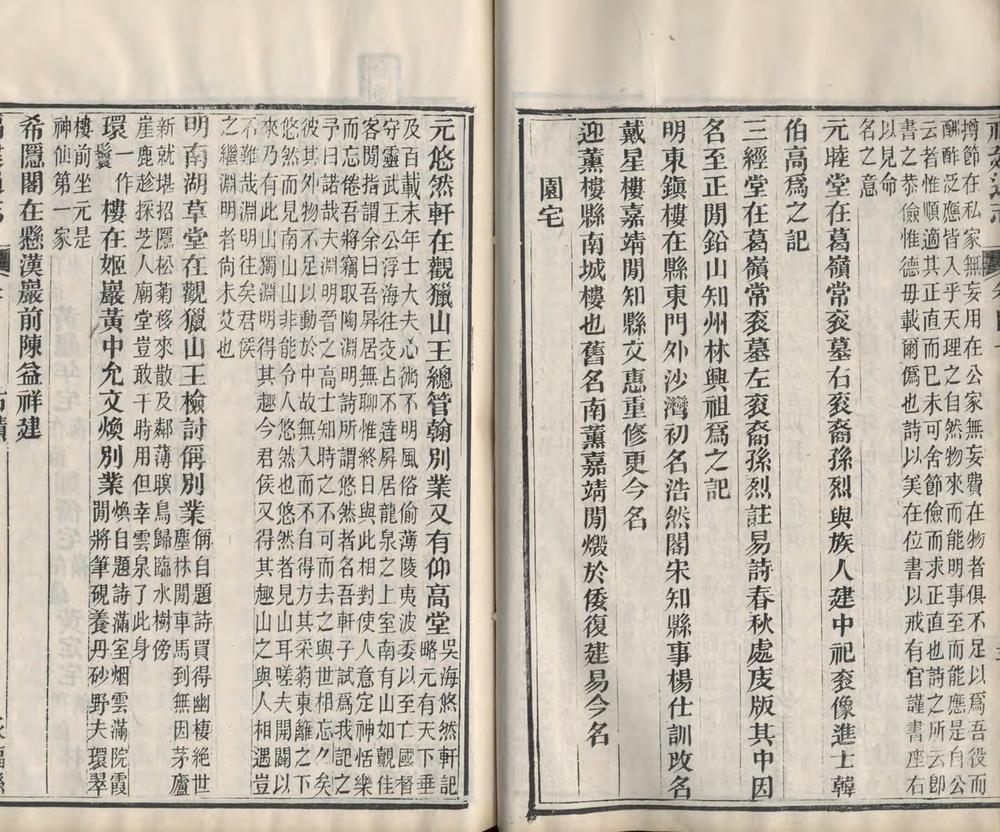 撙節在私家無妄用在公家無妄費在物者俱不足以爲吾役而
酬酢泛應皆入乎天理之自然物來而能明事至而能應是自公
云者惟順適其正直而已未可舍節儉而求正直也詩之所云卽
書之恭儉惟德毋載爾僞也詩以美在位書以戒有官謹書座右
以見命
名之意
元睦堂在葛嶺常袞墓右袞裔孫烈與族人建中祀袞像進士韓
伯高爲之記
三經堂在葛嶺常袞墓左袞裔孫烈註易詩春秋處庋版其中因
名至正閒鉛山知州林興祖爲之記
明東鎮樓在縣東門外沙灣初名浩然閣宋知縣事楊仕訓改名
戴星樓嘉靖閒知縣文惠重修更今名
迎薰樓縣南城樓也舊名南薰嘉靖閒燬於倭復建易今名
園宅
元悠然軒在觀獵山王總管翰別業又有仰高堂
吳海悠然軒記
略元有天下垂
及百載末年士大夫心術不明風俗偷薄陵夷波委以至亡國督
守靈武王公浮海往交占不達屏居龍泉之上室南有山如覩佳
客閒指謂余曰吾屏居無聊惟終日與此相對使人意定神恬樂
而忘倦吾將竊取陶淵明詩所謂悠然者名吾軒子試爲我記之
予曰諾哉夫淵明晉之高士知時之不可而去之與世相忘久矣
彼其外物不足以動於中故無入而不自得方其采菊東籬之下
悠然而見南山山非能令人悠然也悠然者見山耳嗟夫開闢以
來乃有此山獨淵明得其趣今君侯又得其趣山之與人相遇豈
不難哉淵明往矣君侯
之繼淵明者尚未艾也
明南湖草堂在觀獵山王檢討偁別業
偁自題詩買得幽棲絕世
塵林閒車馬到無因茅廬
新就堪招隱松菊移來散及鄰薄暝鳥歸臨水樹傍
崖鹿趁探芝人廟堂豈敢干時用但幸雲泉了此身
環
一作
鬟
樓在姬巖黃中允文煥別業
煥自題詩滿室烟雲滿院霞
閒將筆硯養丹砂野夫環翠
樓前坐元是
神仙第一家
希隱閣在懸漢巖前陳益祥建